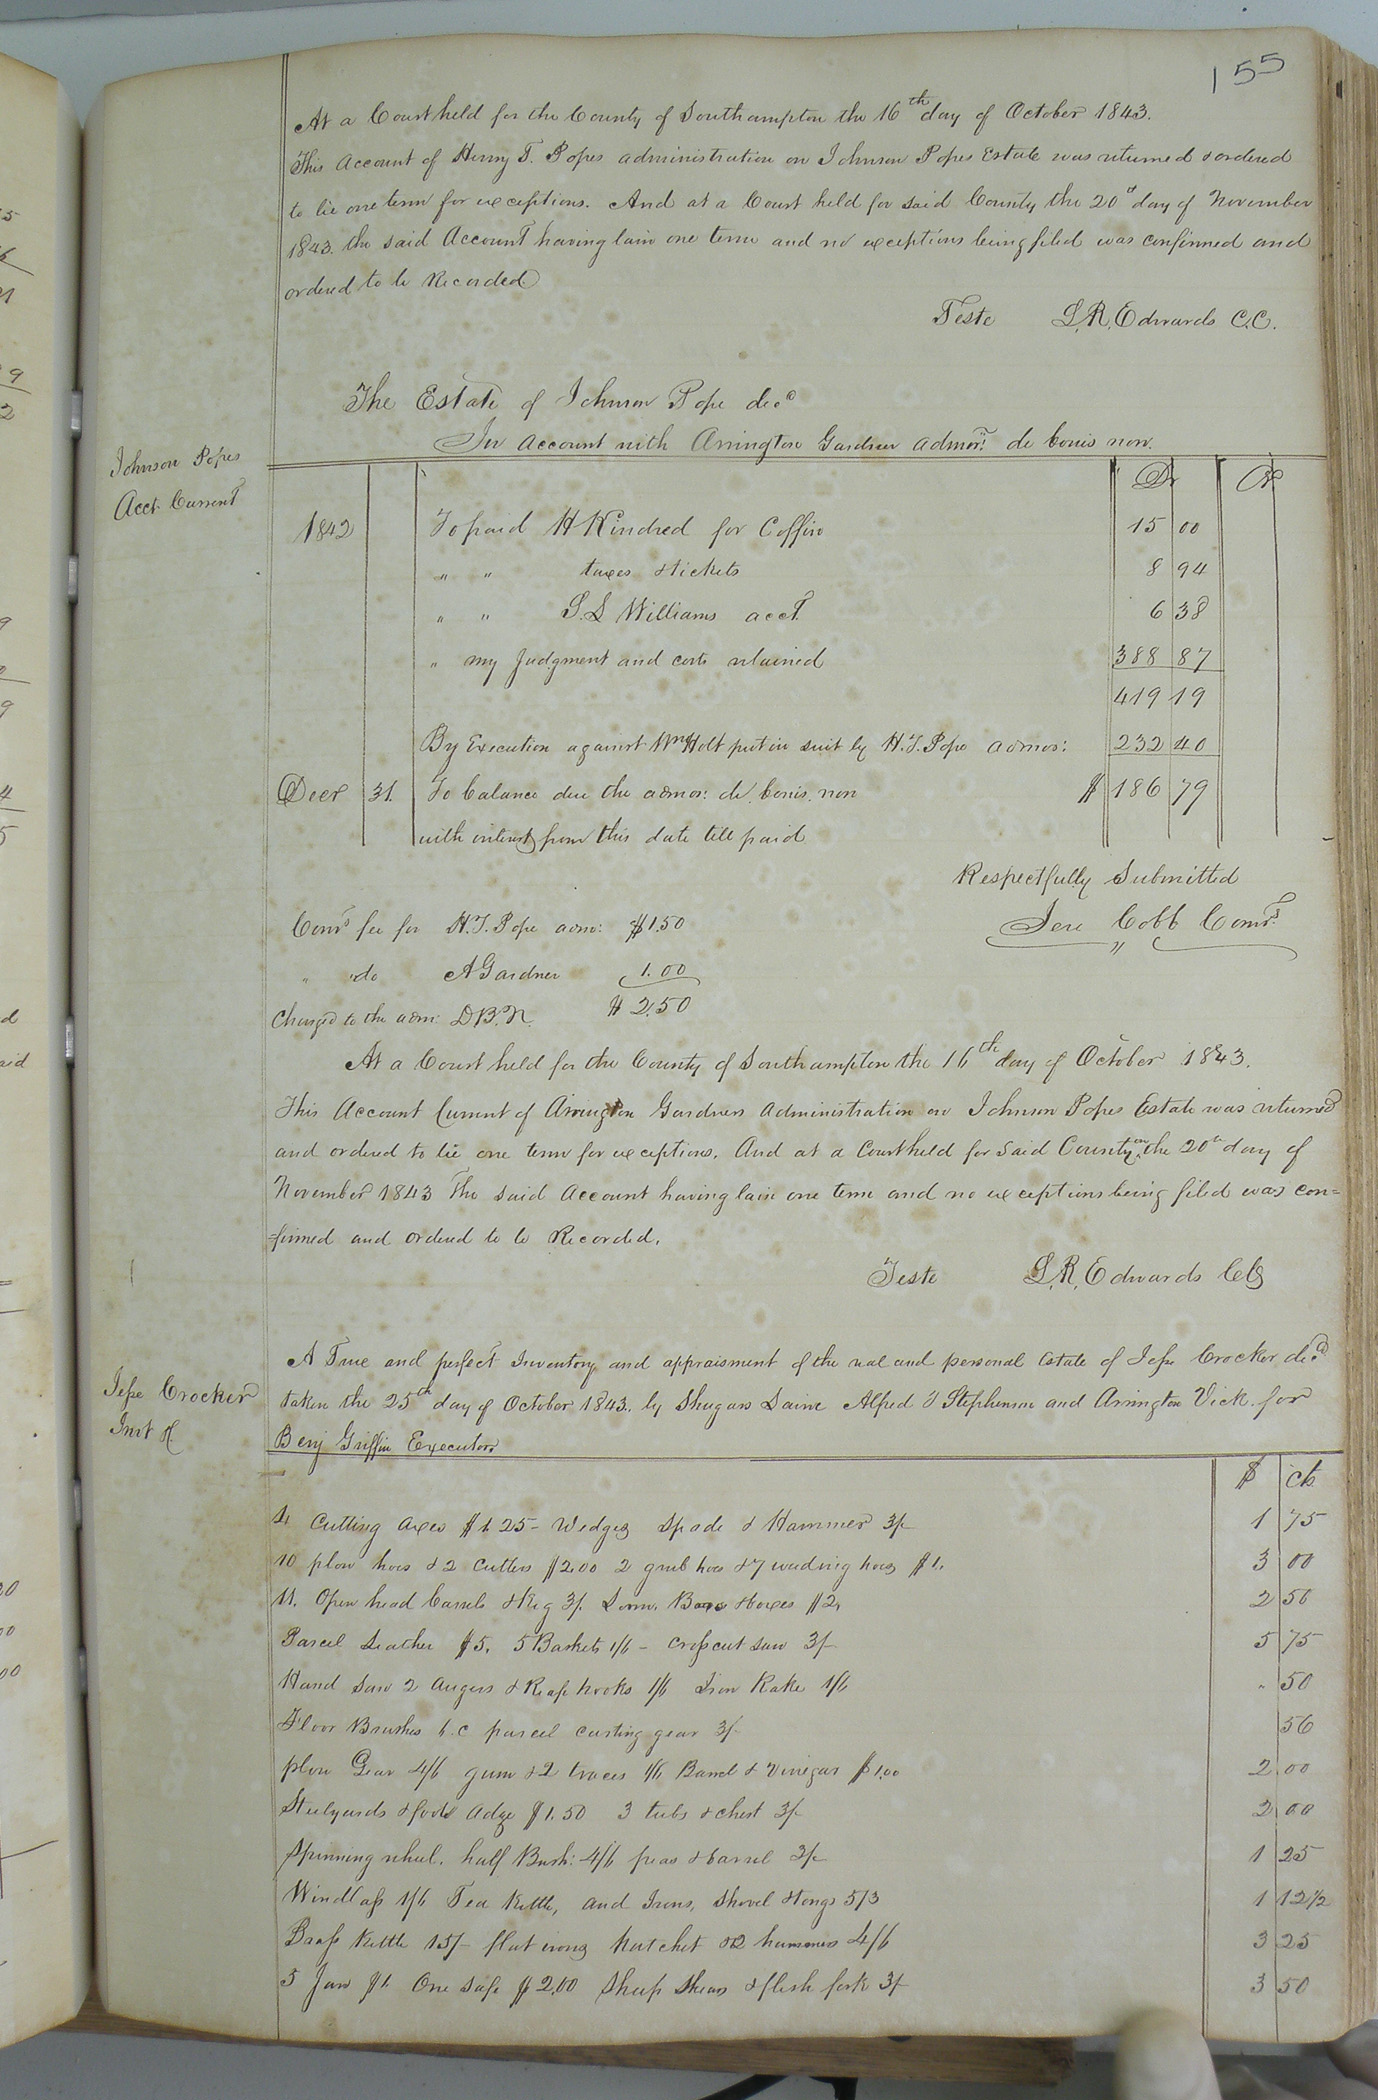 155
At a Court held for the County of Southampton the 16th day of October 1843.
This Account of Henry T. Popes administration on Johnson Popes Estate was returned & ordered
to lie one term for exceptions. And at a Court held for said County the 20th day of November
1843. the said Account having lain one term and no exceptions being filed was confirmed and
ordered to be Recorded
Teste L. R. Edwards C.C.
The Estate of Johnson Pope decd
In Account with Arrington Gardner admor. de bonis non.
Johnson Popes
Acct. Current
Dr Cr
1842 To paid H Kindred for Coffin 15 00
" " taxes & tickets 8 94
" " S. L Williams acct. 6 38
" my Judgment and costs retained 388 87
419 19
By Execution against Wm Holt put in suit by H. T. Pope admor: 232 40
Decr 31. To balance due the admor: de bonis non $ 186 79
with interest from this date till paid
Respectfully Submitted
Jere Cobb Comr.
Comrs fee for H. T. Pope adm: $1.50
" do A Gardner 1.00
Charged to the adm: D.B.N. $ 2.50
At a Court held for the County of Southampton the 16th day of October 1843.
This Account Current of Arrington Gardners Administration on Johnson Popes Estate was returned
and ordered to lie one term for exceptions. And at a Court held for said County on the 20th day of
November 1843 The said Account having lain one term and no exceptions being filed was con=
=firmed and ordered to be Recorded.
Teste L. R. Edwards Clk
Jesse Crocker
Invt &
A True and perfect Inventory and appraisment of the real and personal Estate of Jesse Crocker decd
taken the 25th day of October 1843. by Shugars Laine Alfred Stephenson and Arrington Vick for
Benj Griffin Executor
$ cts
4 Cutting axes $1.25 - Wedges Spade & Hammer 3/- 1 75
10 plow hoes & 2 Cutters $2.00 2 grub hoes & 7 weeding hoes $1. 3 00
11. Open head barrels & Keg 3/. Boxes $2, 2 50
Parcel Leather $5. 5 Baskets 1/6 - Crosscut saw 3/- 5 75
Hand Saw 2 Augers & Reap hooks 1/6 Iron Rake 1/6 " 50
Floor Brushes 6.c parcel curting gear 3/- 56
plow Gear 4/6 gum & 2 traces 1/6 Barrel & Vinegar $1.00 2 00
Steelyards & foot adze $1.50 3 tubs & chest 3/- 2 00
Spinning wheel. half Bush: 4/6 peas & barrel 3/- 1 25
Windlass 1/6 Tea Kettle, and Irons, Shovel & tongs 5/3 1 12 1/2
Brass Kettle 15/- flat irons hatchet & 2 hammers 4/6 3 25
5 Jars $1. One Safe $2.00 Sheep Shears & flesh fork 3/- 3 50